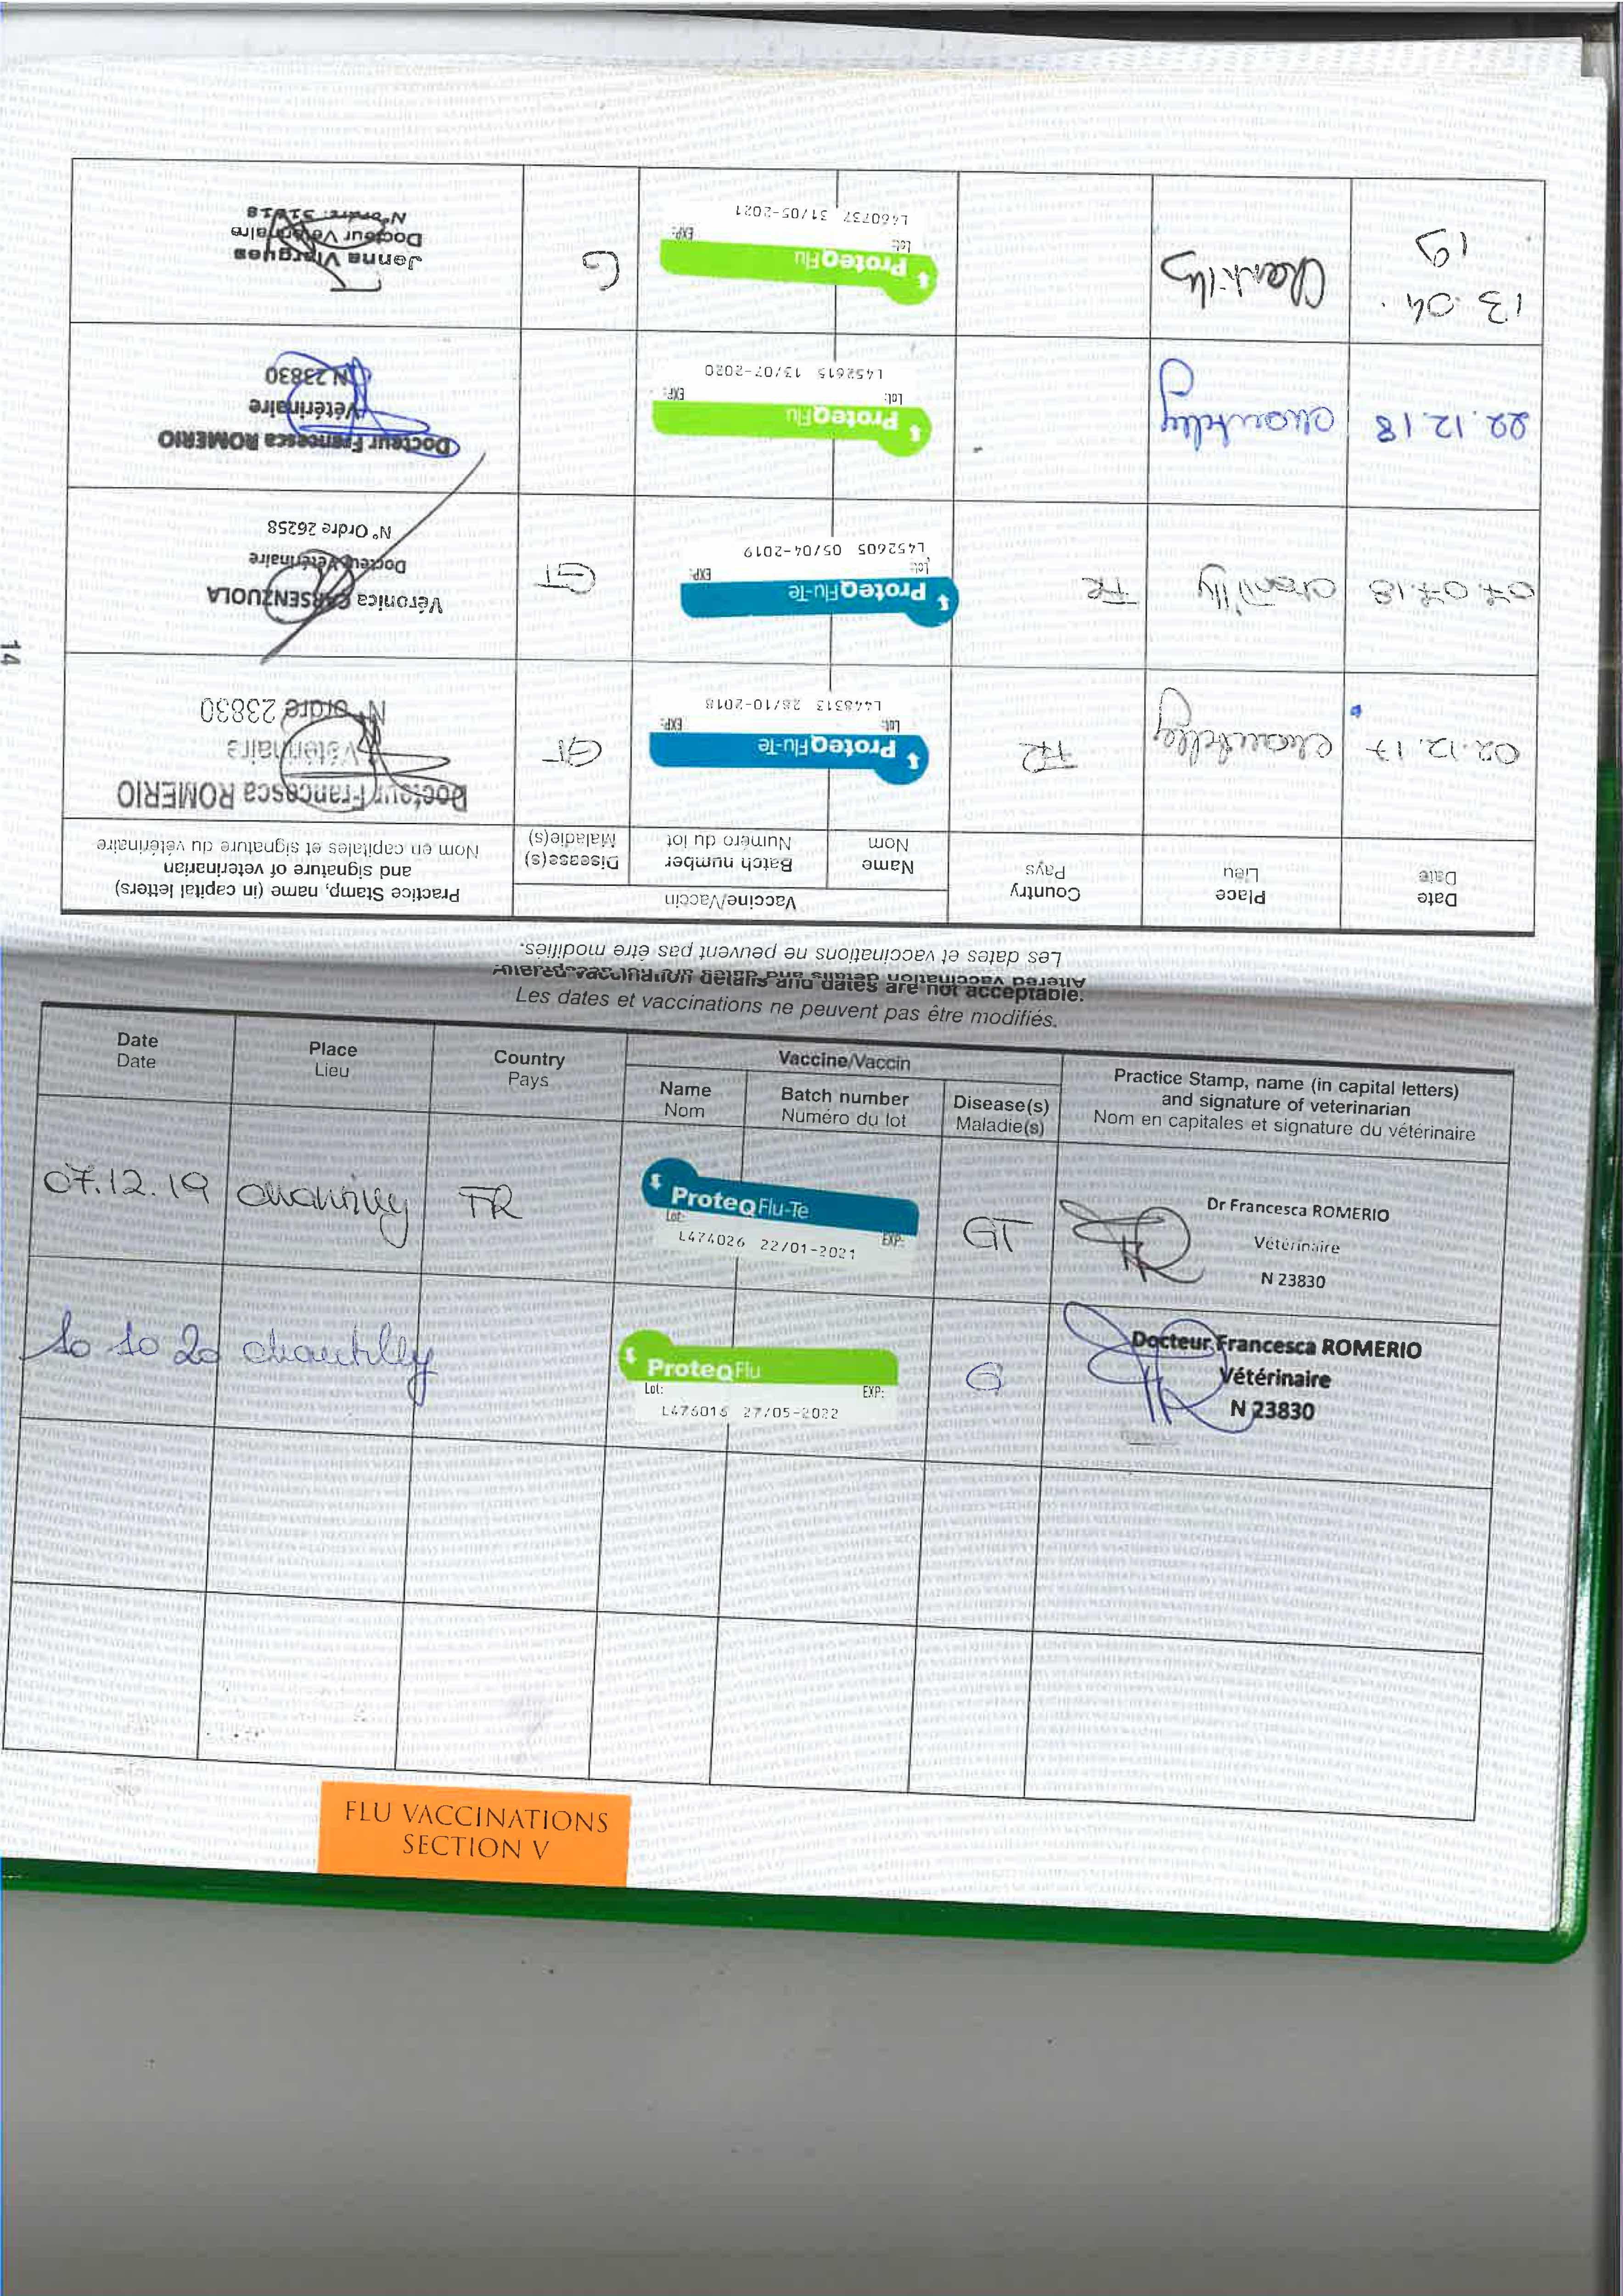 14
Les dates et vaccinations ne peuvent pas être modifiés.
Date
Date
Place
Lieu
Country
Pays
Vaccine/Vaccin
Name
Nom
Batch number
Numéro du lot
Disease(s)
Maladie(s)
Practice Stamp, name (in capital letters)
and signature of veterinarian
Nom en capitales et signature du vétérinaire
02.12.17 Chantilly FR
ProteqFlu-Te
Lot: EXP:
L448313 28/10-2018
GT
Docteur Francesca ROMERIO
Vétérinaire
N° ordre 23830
07.07.18 Chantilly FR
ProteqFlu-Te
Lot: EXP:
L452605 05/04-2019
GT
Véronica CARSENZUOLA
Docteur Vétérinaire
N° Ordre 26258
22.12.18 Chantilly
ProteqFlu
Lot: EXP:
L452615 13/07-2020
Docteur Francesca ROMERIO
Vétérinaire
N 23830
13.04.
19
Chantilly
ProteqFlu
Lot: EXP:
L460737 31/05-2021
G
Jenna Viargues
Docteur Vétérinaire
N°ordre:
Altered vaccination details and dates are not acceptable.
Les dates et vaccinations ne peuvent pas être modifiés.
Date
Date
Place
Lieu
Country
Pays
Vaccine/Vaccin
Name
Nom
Batch number
Numéro du lot
Disease(s)
Maladie(s)
Practice Stamp, name (in capital letters)
and signature of veterinarian
Nom en capitales et signature du vétérinaire
07.12.19 Chantilly FR
ProteqFlu-Te
Lot: EXP:
L474026 22/01-2021
GT
Dr Francesca ROMERIO
Vétérinaire
N 23830
10 10 20 Chantilly
ProteqFlu
Lot: EXP:
L476016 27/05-2022
G
Docteur Francesca ROMERIO
Vétérinaire
N 23830
FLU VACCINATIONS
SECTION V